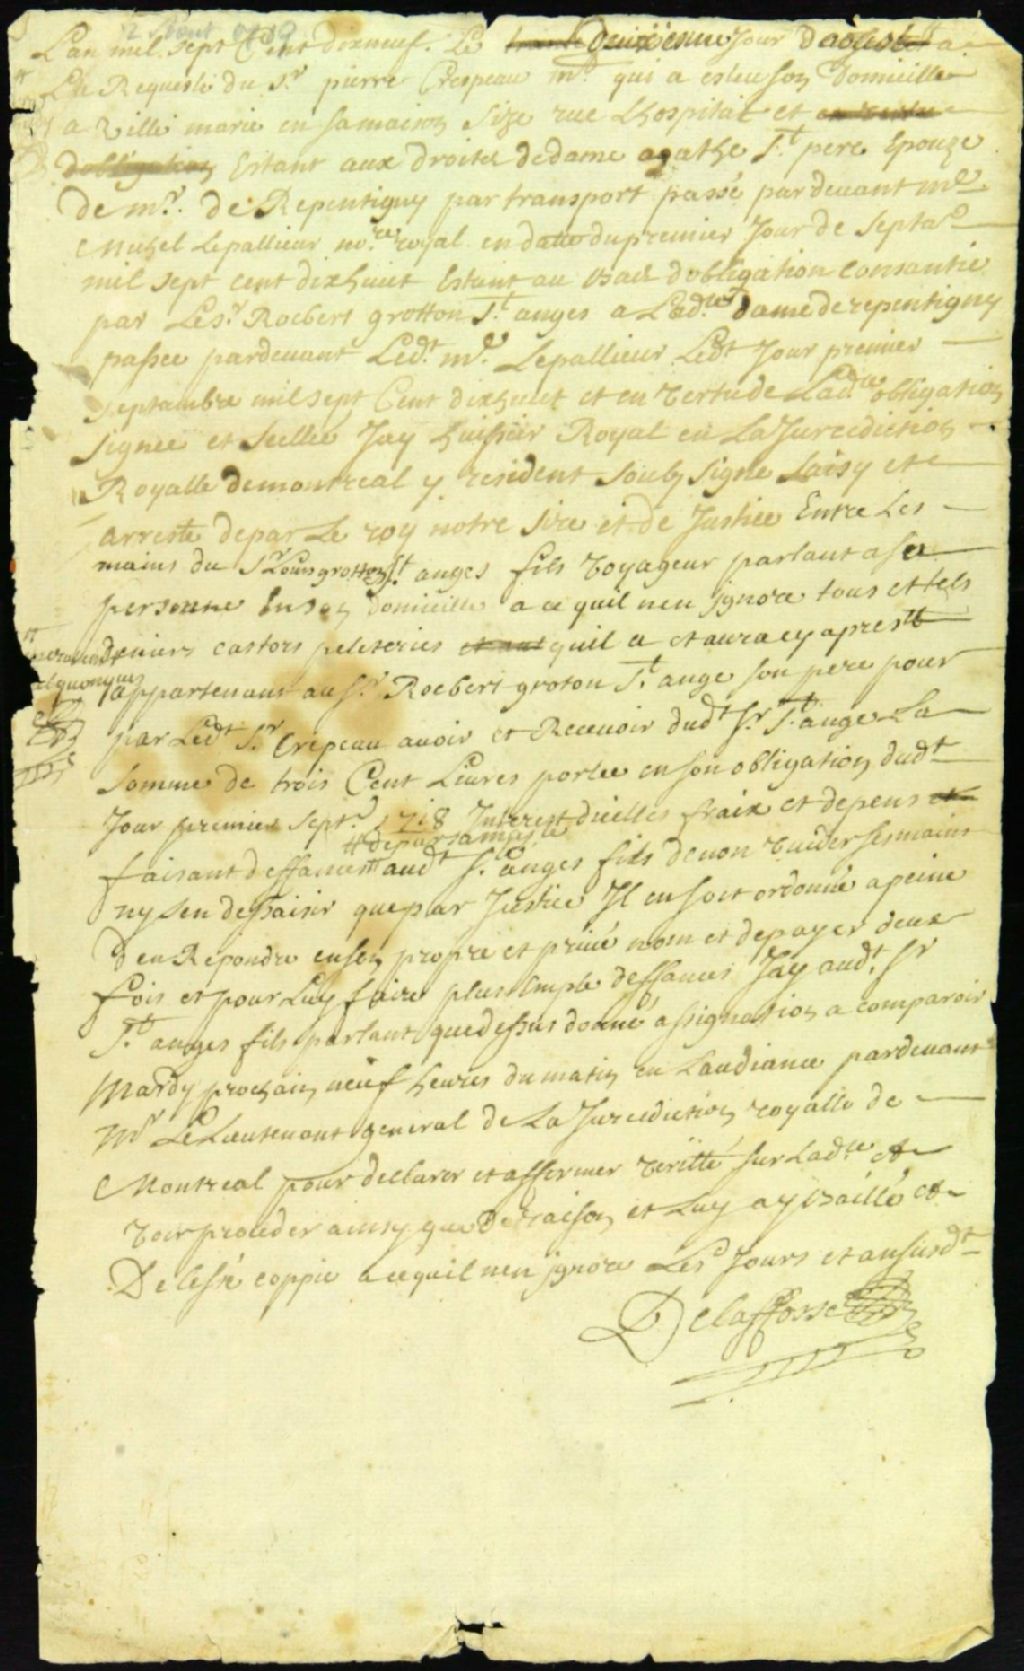 Lan mil sept Cent dixneuf. Le quinziesme Jour daoust a
La Requeste du Sr pierre Crespeau md. qui a esleu son domicille
a Ville marie en sa maison size rue Lhospital et en vertu
dobligation Estant aux droits de dame agathe St. pere Epouze
de mr. de Repentigny par transport passé pardevant me
Michel Lepallieur no.re royal en datte du premier Jour de Septa.
mil sept cent dixhuict Estant au bas dobligation consantie
par Le Sr. Roebert grotton St. anges a Lad.te dame de repentigny
passee pardevant Led.t me. Lepallieur Led.t Jour premier
septambre mil sept Cent dixhuict et en vertu de Lad.te obligation
signée et scellée Jay huissier Royal en La Jurecdiction
Royalle de montreal y resident soubs signe saisy et
arresté de par Le roy notre sire et de Justice Entre Les
mains du Sr Louis grotton St. anges fils voyageur parlant a sa
personne En son domicille a ce quil nen ignore tous et tels
deniers castors peleteries et aut quil a et aura cy apres
appartenans au Sr. Roebert groton St. ange son pere pour
par Led.t Sr. Crepeau avoir et Recevoir dud.t Sr. St. ange La
somme de trois Cent Livres portee en son obligation dud.t
Jour premier Sept.e 1718 Interest dicelles fraix et depens et
de par sa majesté
faisant deffances aud.t St. anges fils de non vuider ses mains
ny sen dessaisir que par Justice Il en soit ordonné a peine
den Repondre en son propre et privé nom et de payer deux
fois et pour Luy faire plus ample deffances Jay aud.t Sr
St. anges fils parlant que dessus donné assignation a comparoir
Mardy prochain neuf heures du matin en Laudiance pardevant
Mr Le Lieutenant general de La Jurecdiction royalle de
Montreal pour declarer et affirmer veritté sur Lad.te et
voir proceder ainsy que de raison et Luy ay baillé et
Delessé coppie a ce quil nen ignore Les Jours et an susd.t
Delaffosse